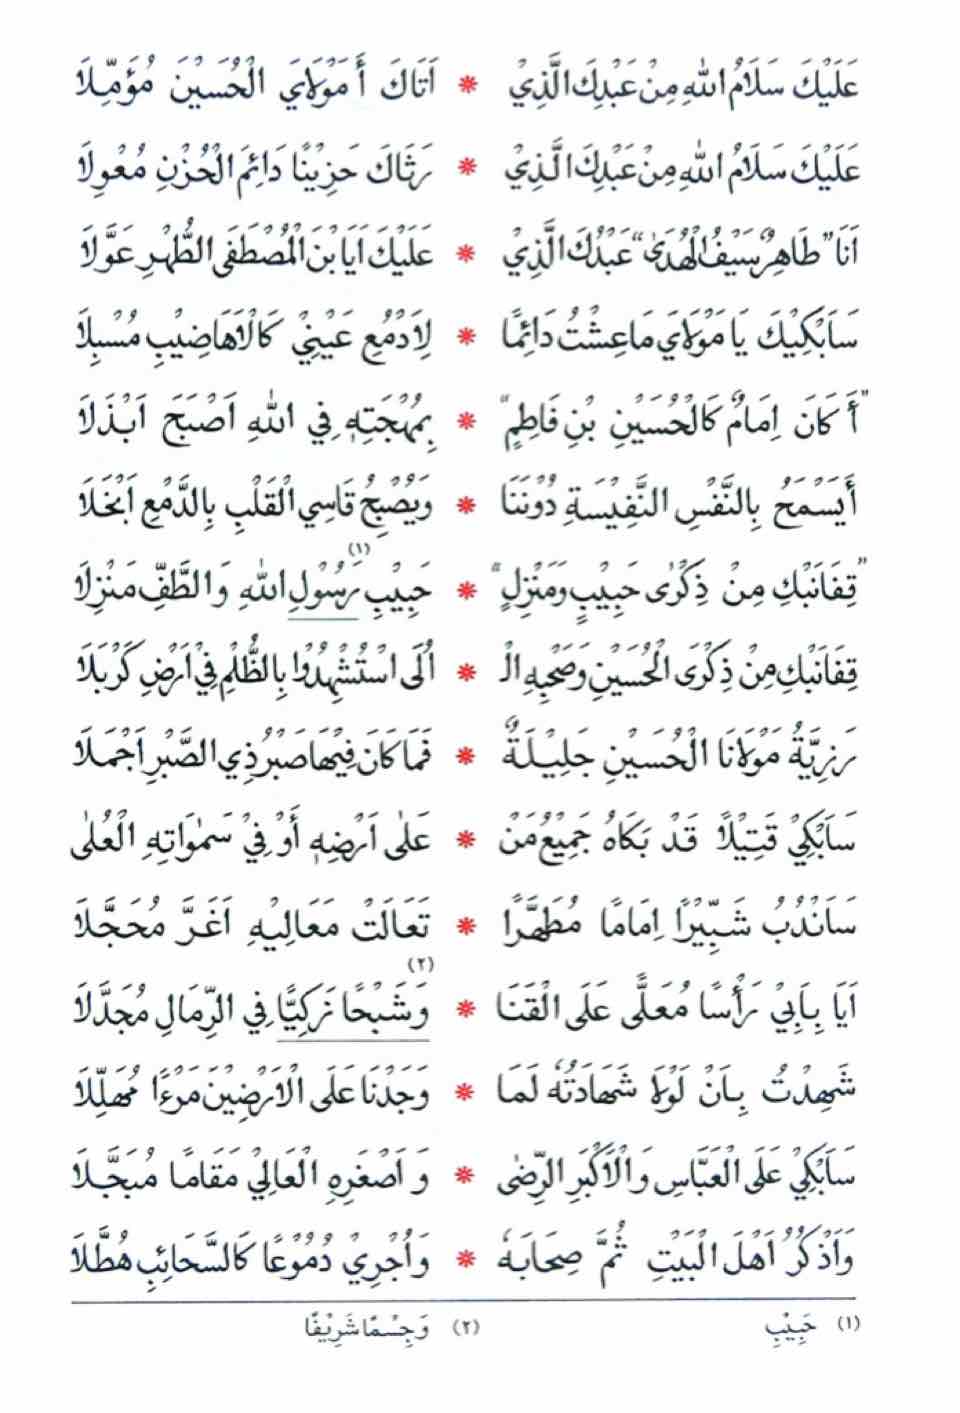 عَلَيْكَ سَلَامُ اللهِ مِنْ عَبْدِكَ الَّذِيْ * اَتَاكَ أَمَوْلَايَ الْحُسَيْنَ مُؤَمِّلَا
عَلَيْكَ سَلَامُ اللهِ مِنْ عَبْدِكَ الَّذِيْ * رَثَاكَ حَزِيْنًا دَائِمَ الْحُزْنِ مُعْوِلَا
اَنَا "طَاهِرٌ سَيْفُ الْهُدَىٰ" عَبْدُكَ الَّذِيْ * عَلَيْكَ اَيَا بْنَ الْمُصْطَفَى الطُّهْرِ عَوَّلَا
سَاَبْكِيْكَ يَا مَوْلَايَ مَا عِشْتُ دَائِمًا * لِاَدْمُعِ عَيْنِيْ كَالْاَهَاضِيْبِ مُسْبِلَا
"أَ كَانَ اِمَامٌ كَالْحُسَيْنِ بْنِ فَاطِمٍ" * بِمُهْجَتِهِ فِي اللهِ اَصْبَحَ اَبْذَلَا
أَيَسْمَحُ بِالنَّفْسِ النَّفِيْسَةِ دُوْنَنَا * وَيُصْبِحُ قَاسِي الْقَلْبِ بِالدَّمْعِ اَبْخَلَا
"قِفَا نَبْكِ مِنْ ذِكْرٰى حَبِيْبٍ وَمَنْزِلٍ" * حَبِيْبِ رَسُوْلِ (١) اللهِ وَالطَّفِّ مَنْزِلَا
قِفَا نَبْكِ مِنْ ذِكْرَى الْحُسَيْنِ وَصَحْبِهِ الْـ * اُلَى اسْتُشْهِدُوْا بِالظُّلْمِ فِيْ اَرْضِ كَرْبَلَا
رَزِيَّةُ مَوْلَانَا الْحُسَيْنِ جَلِيْلَةٌ * فَمَا كَانَ فِيْهَا صَبْرُ ذِي الصَّبْرِ اَجْمَلَا
سَاَبْكِيْ قَتِيْلًا قَدْ بَكَاهُ جَمِيْعُ مَنْ * عَلٰى اَرْضِهِ أَوْ فِيْ سَمٰوَاتِهِ الْعُلٰى
سَاَنْدُبُ شَبِّيْرًا اِمَامًا مُطَهَّرًا * تَعَالَتْ مَعَالِيْهِ اَغَرَّ مُحَجَّلَا
اَيَا بِاَبِيْ رَأْسًا مُعَلًّى عَلَى الْقَنَا * وَشَبْحًا زَكِيًّا (٢) فِي الرِّمَالِ مُجَدَّلَا
شَهِدْتُ بِاَنْ لَوْلَا شَهَادَتُهُ لَمَا * وَجَدْنَا عَلَى الْاَرْضِيْنَ مَرْءًا مُهَلِّلَا
سَاَبْكِيْ عَلَى الْعَبَّاسِ وَالْاَكْبَرِ الرِّضٰى * وَ اَصْغَرِهِ الْعَالِيْ مَقَامًا مُبَجَّلَا
وَاَذْكُرُ اَهْلَ الْبَيْتِ ثُمَّ صِحَابَهُ * وَاُجْرِيْ دُمُوْعًا كَالسَّحَائِبِ هُطَّلَا
(١) حَبِيْبِ (٢) وَجِسْمًا شَرِيْفًا